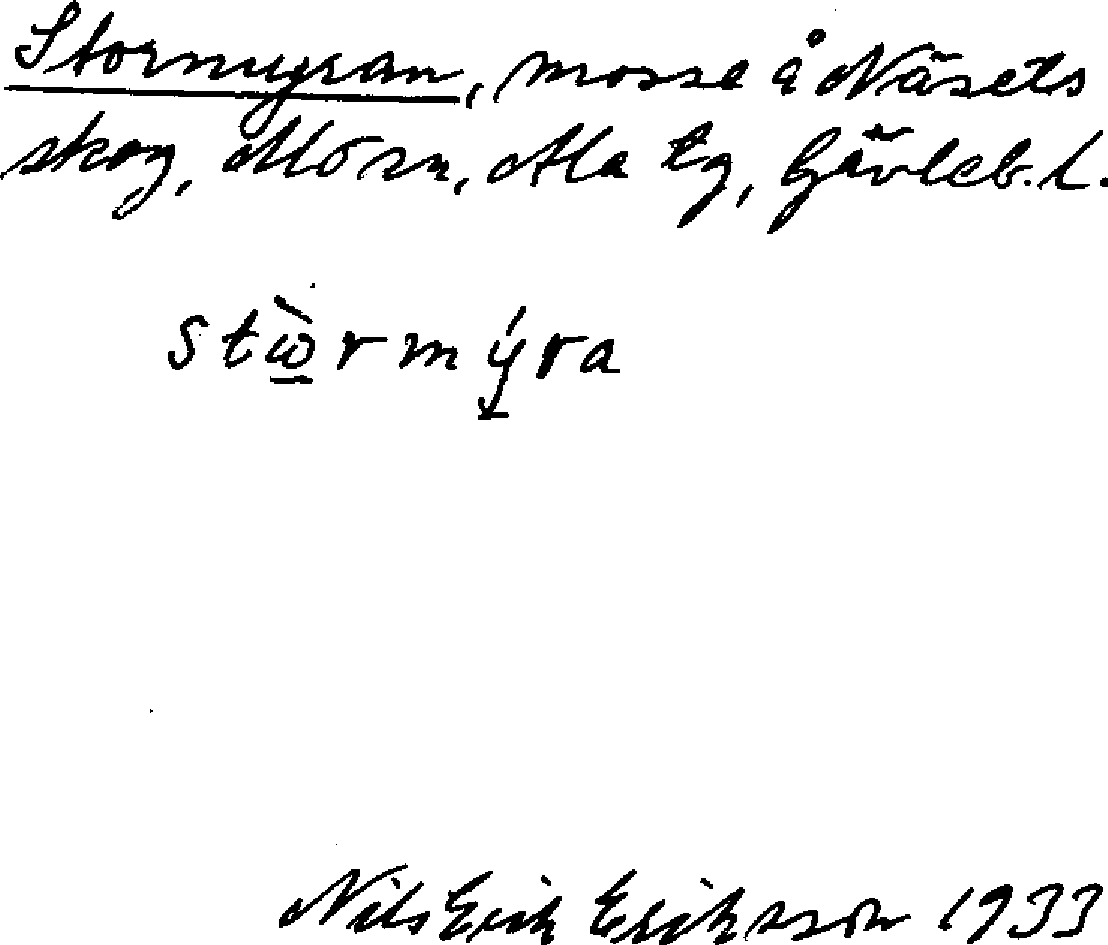 Stormyran, mosse å Näsets
skog, Mo sn, Ala tg, Gävleb. l.
stὼ̲rmýra
Nils Erik Eriksson 1933